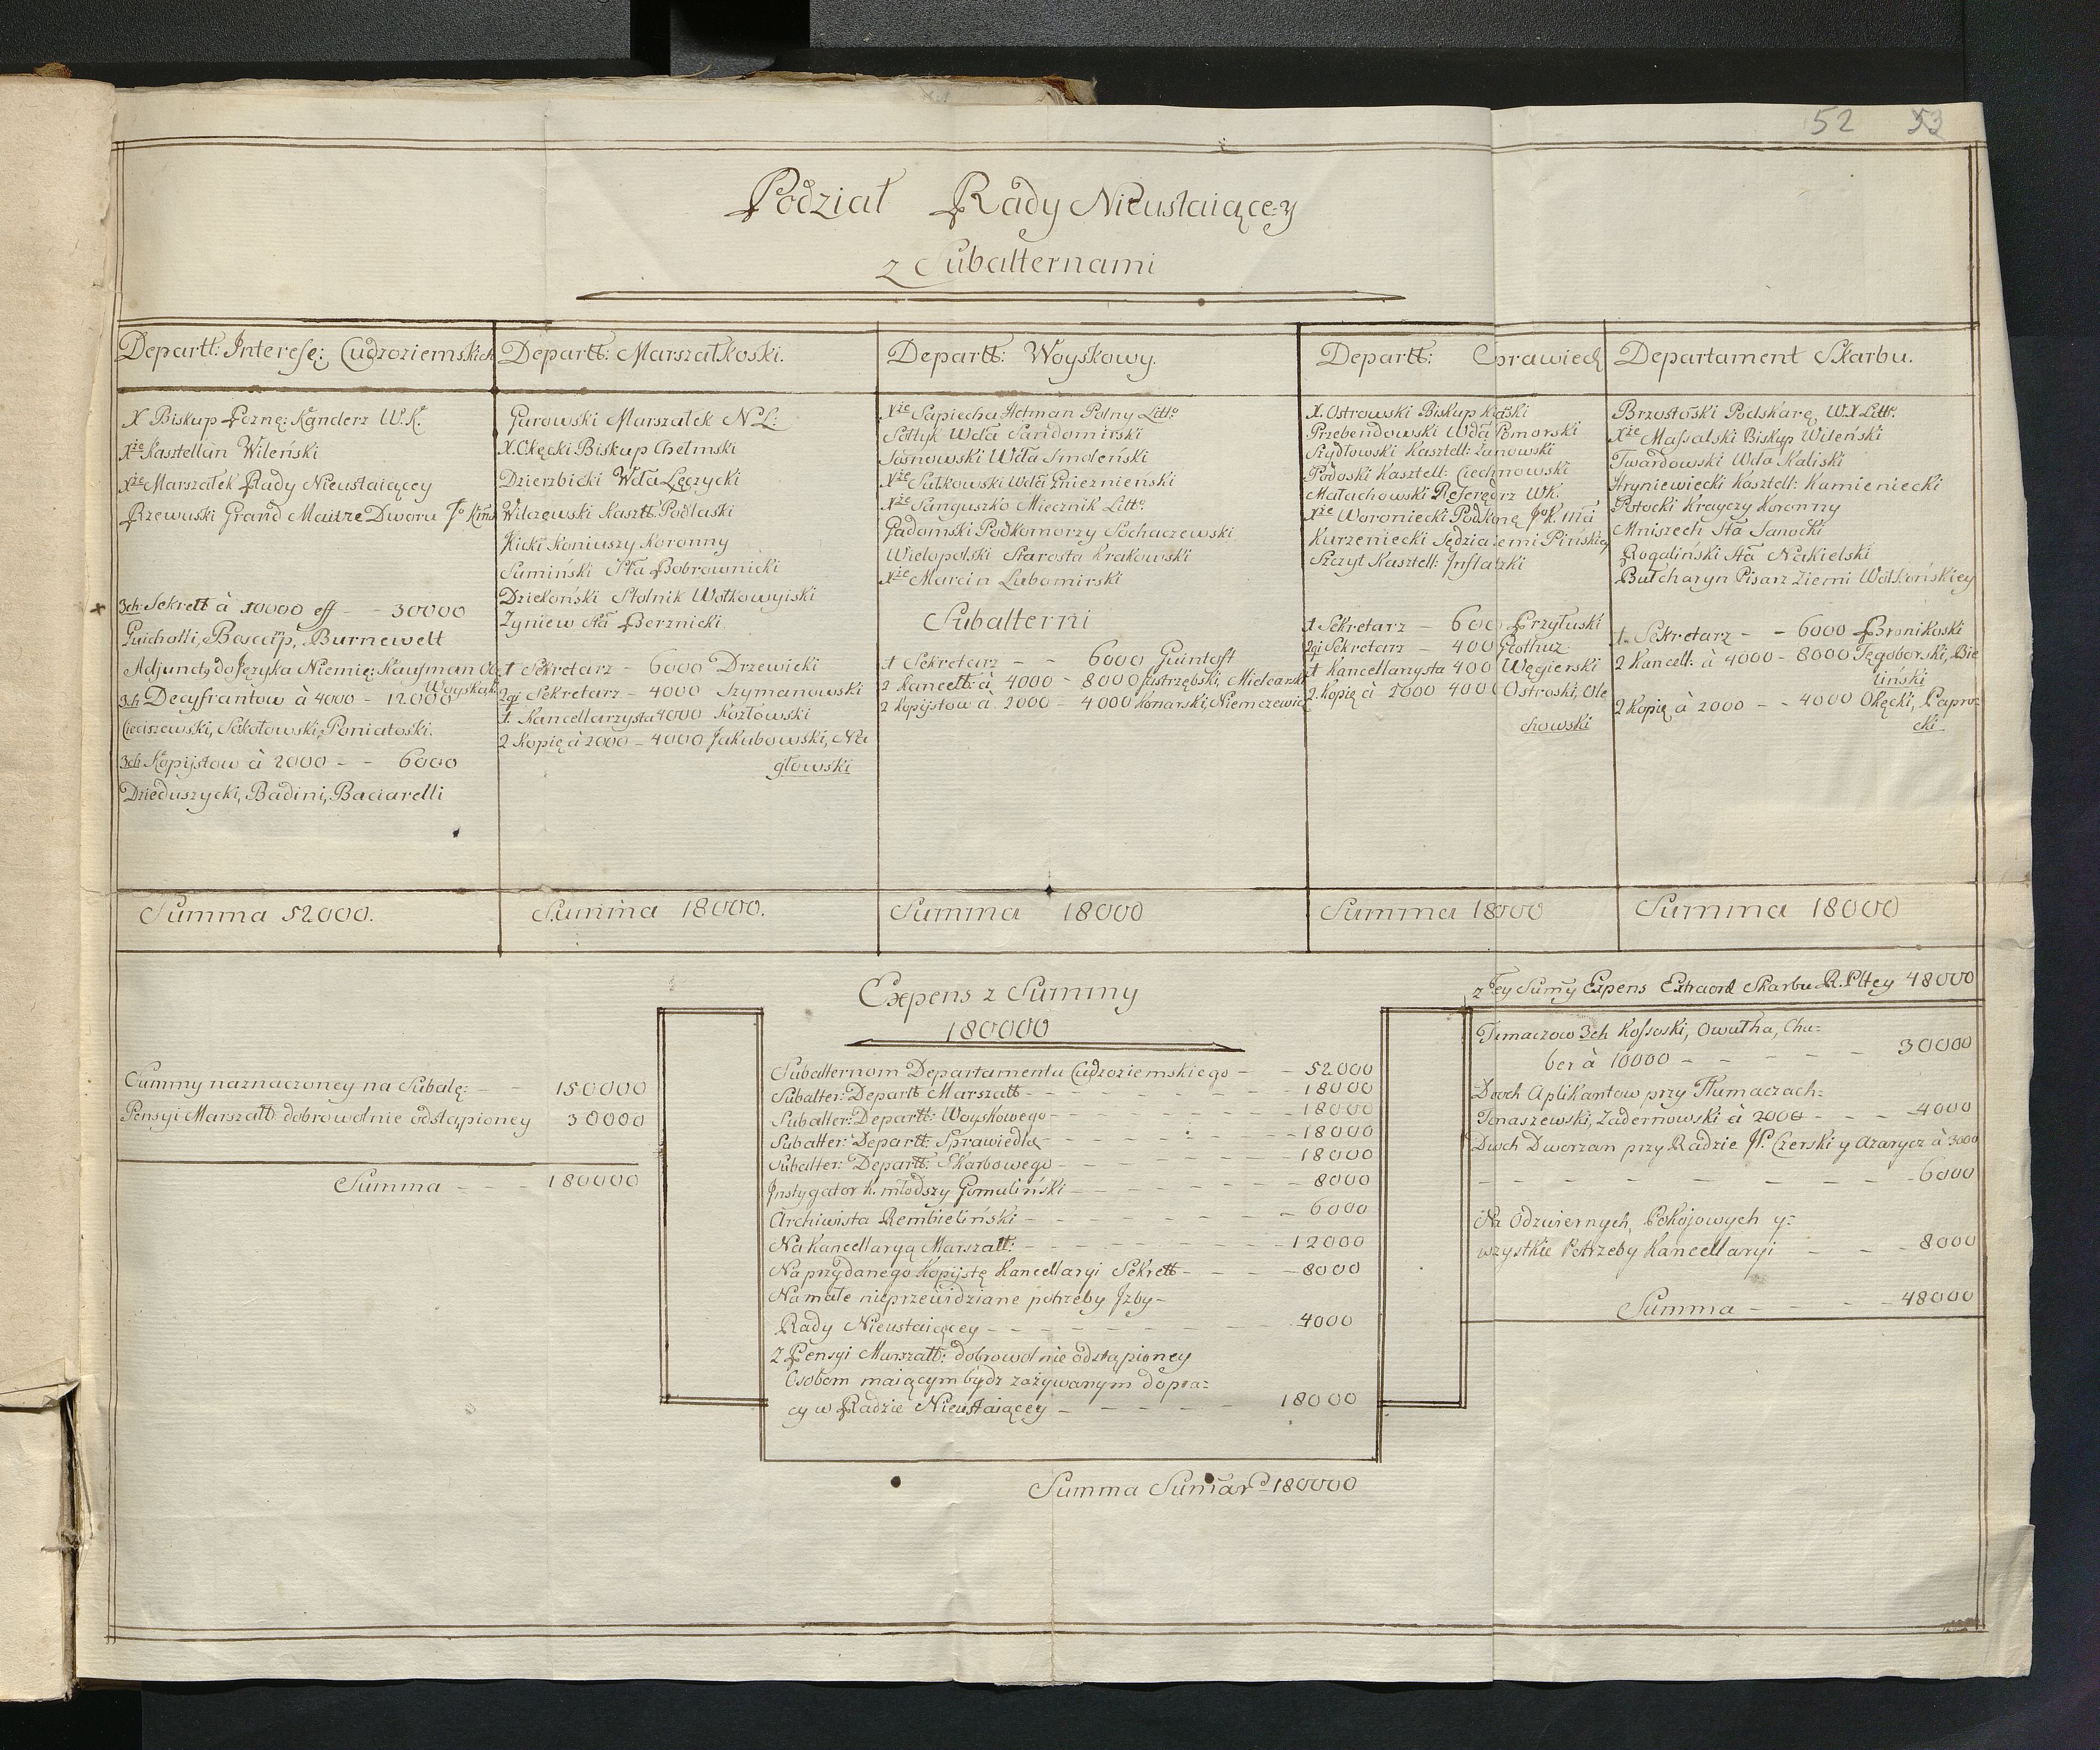 52 53
Podział Rady Nieustaiącey
z Subalternami
Departt: Interesę: Cudzoziemskich
X Biskup Poznę: Kanclerz W.K.
Xże Kasztellan Wileński
Xże Marszałek Rady Nieustaiącey
Rzewuski Grand Maitre Dworu
3ch Sekrett à 10000 eff - - 30000
Burnewelt
Adjunct do Języka Niemię: Kaufman
Woyskak
3ch Decyfrantow à 4000 - 12000
Cieciszewski, Sokołowski, Poniatoski.
3ch Kopijstow à 2000 - - 6000
Dzieduszycki, Badini, Baciarelli
Summa 52000.
Departt: Marszałkoski.
Gurowski Marszałek N L:
X. Okęcki Biskup Chełmski
Dzierzbicki Wda Łęczycki
Wilczewski Kasztt: Podlaski
Kicki Koniuszy Koronny
Sumiński Sta Bobrownicki
Dziekoński Stolnik Wołkowyiski
Zyniew Sta Berznicki
1 Sekretarz - 6000 Drzewicki
2gi Sekretarz - 4000 Szymanowski
1 Kancellarzysta 4000 Kozłowski
2 Kopię à 2000 - 4000 Jakubowski, Na
głowski
Summa 18000.
Departt: Woyskowy.
Xże Sapiecha Hetman Polny Litto
Sołtyk Wda Sandomirski
Sosnowski Wda Smoleński
Xże Sułkowski Wda Gnieznieński
Xże Sanguszko Miecznik Litto
Gadomski Podkomorzy Sochaczewski
Wielopolski Starosta Krakowski
Xże Marcin Lubomirski
Subalterni
1 Sekretarz - - 6000 Guintoft
2 Kancelt: à 4000 - 8000 Jastrzębski, Mielcarski
2 Kopijstow à 2000 - 4000 Konarski, Niemczewicz
Summa 18000
Departt: Sprawiedl
X. Ostrowski Biskup Kuaski
Przebendowski Wda Pomorski
Szydłowski Kasztell: Żarnowski
Podoski Kasztell: Ciechnowski
Małachowski Referędarz WK.
Xże Woroniecki Podkonę J. K. Mci
Kurzeniecki Sędzia Ziemi Pińskiey
Szczyt Kasztell: Inflatzki
1 Sekretarz - 600 Przyłuski
2gi Sekretarz - 400 Glothuz
1 Kancellarzysta 400 Węgierski
2. Kopię à 2000 400 Ostroski, Ole
chowski
Summa 18000
Departament Skarbu.
Brzostoski Podskarę W.X Litto.
Xże Massalski Biskup Wileński
Twardowski Wda Kaliski
Hryniewiecki Kasztell: Kamieniecki
Potocki Krayczy Koronny
Mniszech Sta Sanocki
Rogaliński Sta Nakielski
Bułcharyn Pisarz Ziemi Wołkońskiey
1. Sekretarz - - 6000 Bronikoski
2 Kancell: à 4000 - 8000 Tęgoborski, Bie
liński
2 Kopię à 2000 - - 4000 Okęcki, Papro-
cki
Summa 18000
Summy naznaczoney na Subalę: - - 150000
Pensyi Marszałl: dobrowolnie odstąpioney 30000
Summa - - - 180000
Expens z Summy
180000
Subalternom Departamentu Cudzoziemskiego - - 52000
Subalter: Departt Marszałł - - - 18000
Subalter: Departt: Woyskowego - - - 18000
Subalter: Departt. Sprawiedlę - - - 18000
Subalter: Departt: Skarbowego - - - 18000
Instygator K. młodszy Gomuliński - - - 8000
Archiwista Rembieliński - - - 6000
Na Kancellaryą Marszałł: - - - 12000
Na przydanego Kopijstę Kancellaryi Sekrett - - - 8000
Na małe nieprzewidziane potrzeby Izby -
Rady Nieustaiącey - - - 4000
Z Pensyi Marszałł: dobrowolnie odstąpioney
Osobom maiącym bydz zażywanym do pra=
cy w Radzie Nieustaiącey - - - 18000
Summa Sumar 180000
z tey Sumy Expens Extraord Skarbu R. Pltey 48000
Tłmaczow 3ch Kossoski, Owutha, Chu=
ber à 10000 - - - 30000
Dwoch Aplikantow przy Tłumaczach=
Tonaszewski, Zadernowski à 2000 - - - 4000
Dwoch Dworzan przy Radzie JP. Czerski y Azarycz à 3000
- - - 6000
Na Odzwiernych, Pokojowych y=
wszystkie Potrzeby Kancellaryi - - - 8000
Summa - - - 48000